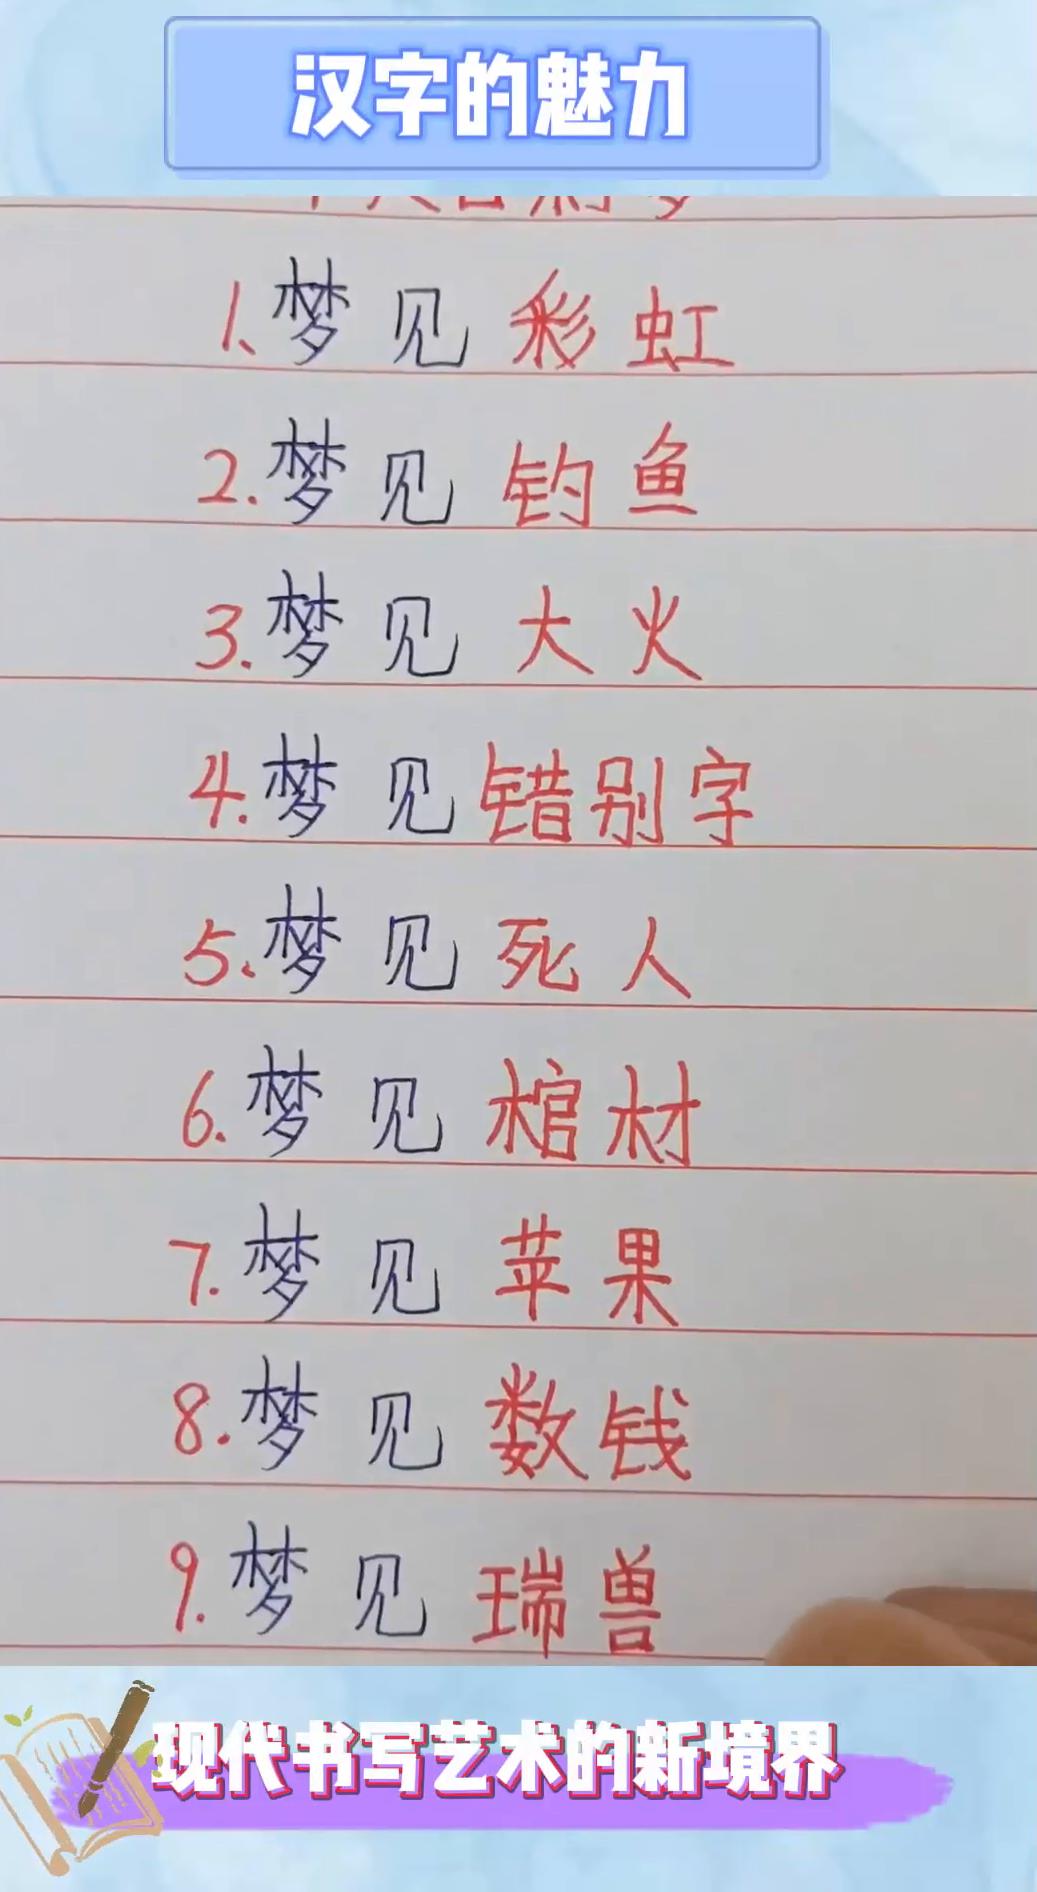 汉字的魅力
1、梦见彩虹
2.梦见钓鱼
3.梦见大火
4.梦见错别字
5、梦见死人
6.梦见棺材
7.梦见苹果
8.梦见数钱
9.梦见瑞兽
现代书写艺术的新境界